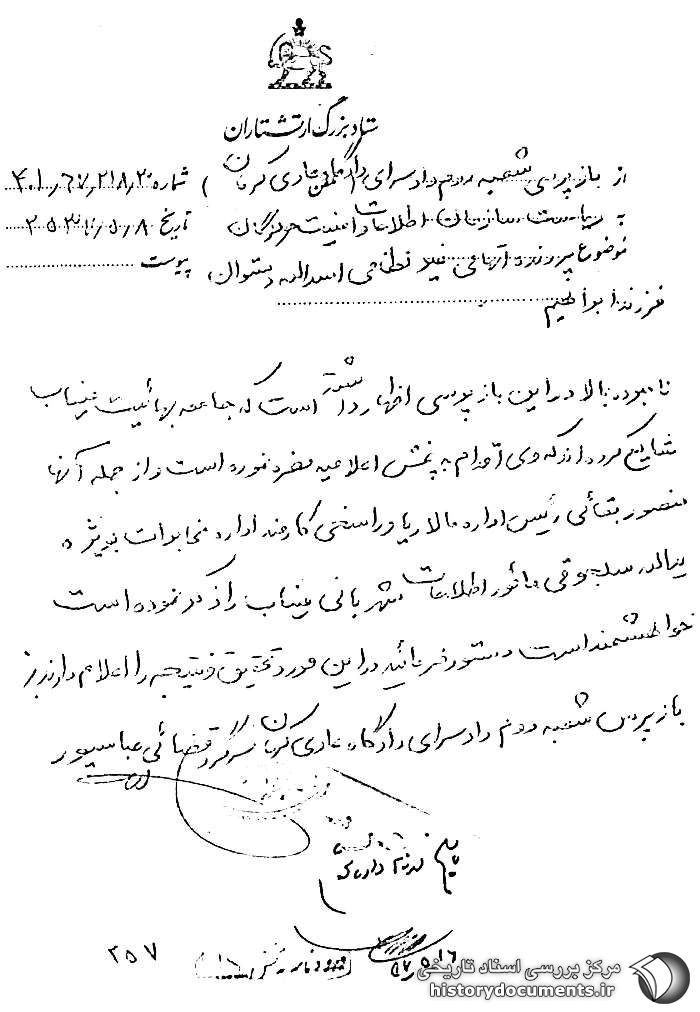 ستاد بزرگ ارتشتاران
از بازپرسی شعبه دوم دادسرای دادگاه عادی کرمان ) شماره ۴۰۱٫۶۷٫۲۱۸٫۲
به ریاست سازمان اطلاعات و امنیت هرمزگان تاریخ ۲۵۳۷٫۵٫۸
موضوع پرونده اتهامی غیر نظامی اسداله پیوست
فرزند ابراهیم
نامبرده بالا در این بازپرسی اظهار داشته است که جامعه بهائیت میناب
شایع کرده‌اند که وی اقدام به پخش اعلامیه مضره نموده است و از جمله آنها
منصور بقائی رئیس اداره مالاریا و راسخی کارمند اداره مخابرات بویژه
سلجوقی مأمور اطلاعات شهربانی میناب را ذکر نموده است
خواهشمند است دستور فرمائید در این مورد تحقیق و نتیجه را اعلام دارند
بازپرس شعبه دوم دادسرای دادگاه عادی کرمان سرگرد قضائی عباسپور
۲۵۷
مرکز بررسی اسناد تاریخی
historydocuments.ir